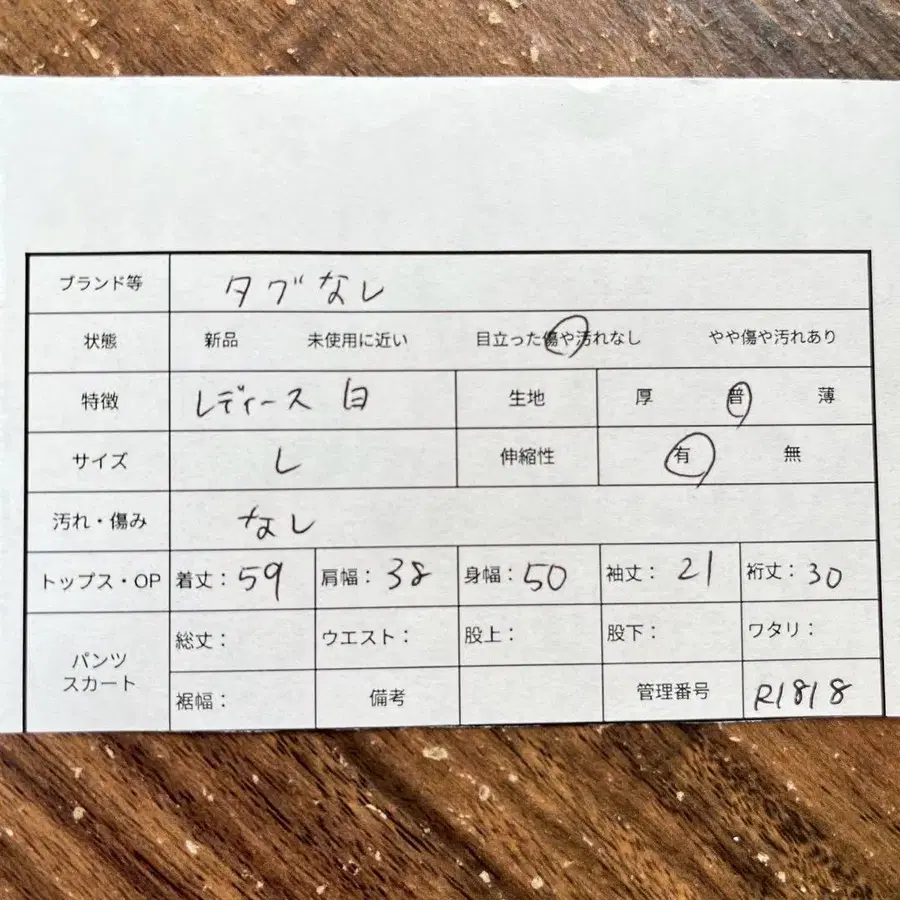 ブランド等 タグなし
状態 新品 未使用に近い 目立った傷や汚れなし やや傷や汚れあり
特徴 レディース 白 生地 厚 普 薄
サイズ L 伸縮性 有 無
汚れ・傷み なし
トップス・OP 着丈：59 肩幅：38 身幅：50 袖丈：21 裄丈：30
パンツ スカート 総丈： ウエスト： 股上： 股下： ワタリ：
裾幅： 備考 管理番号 R1818